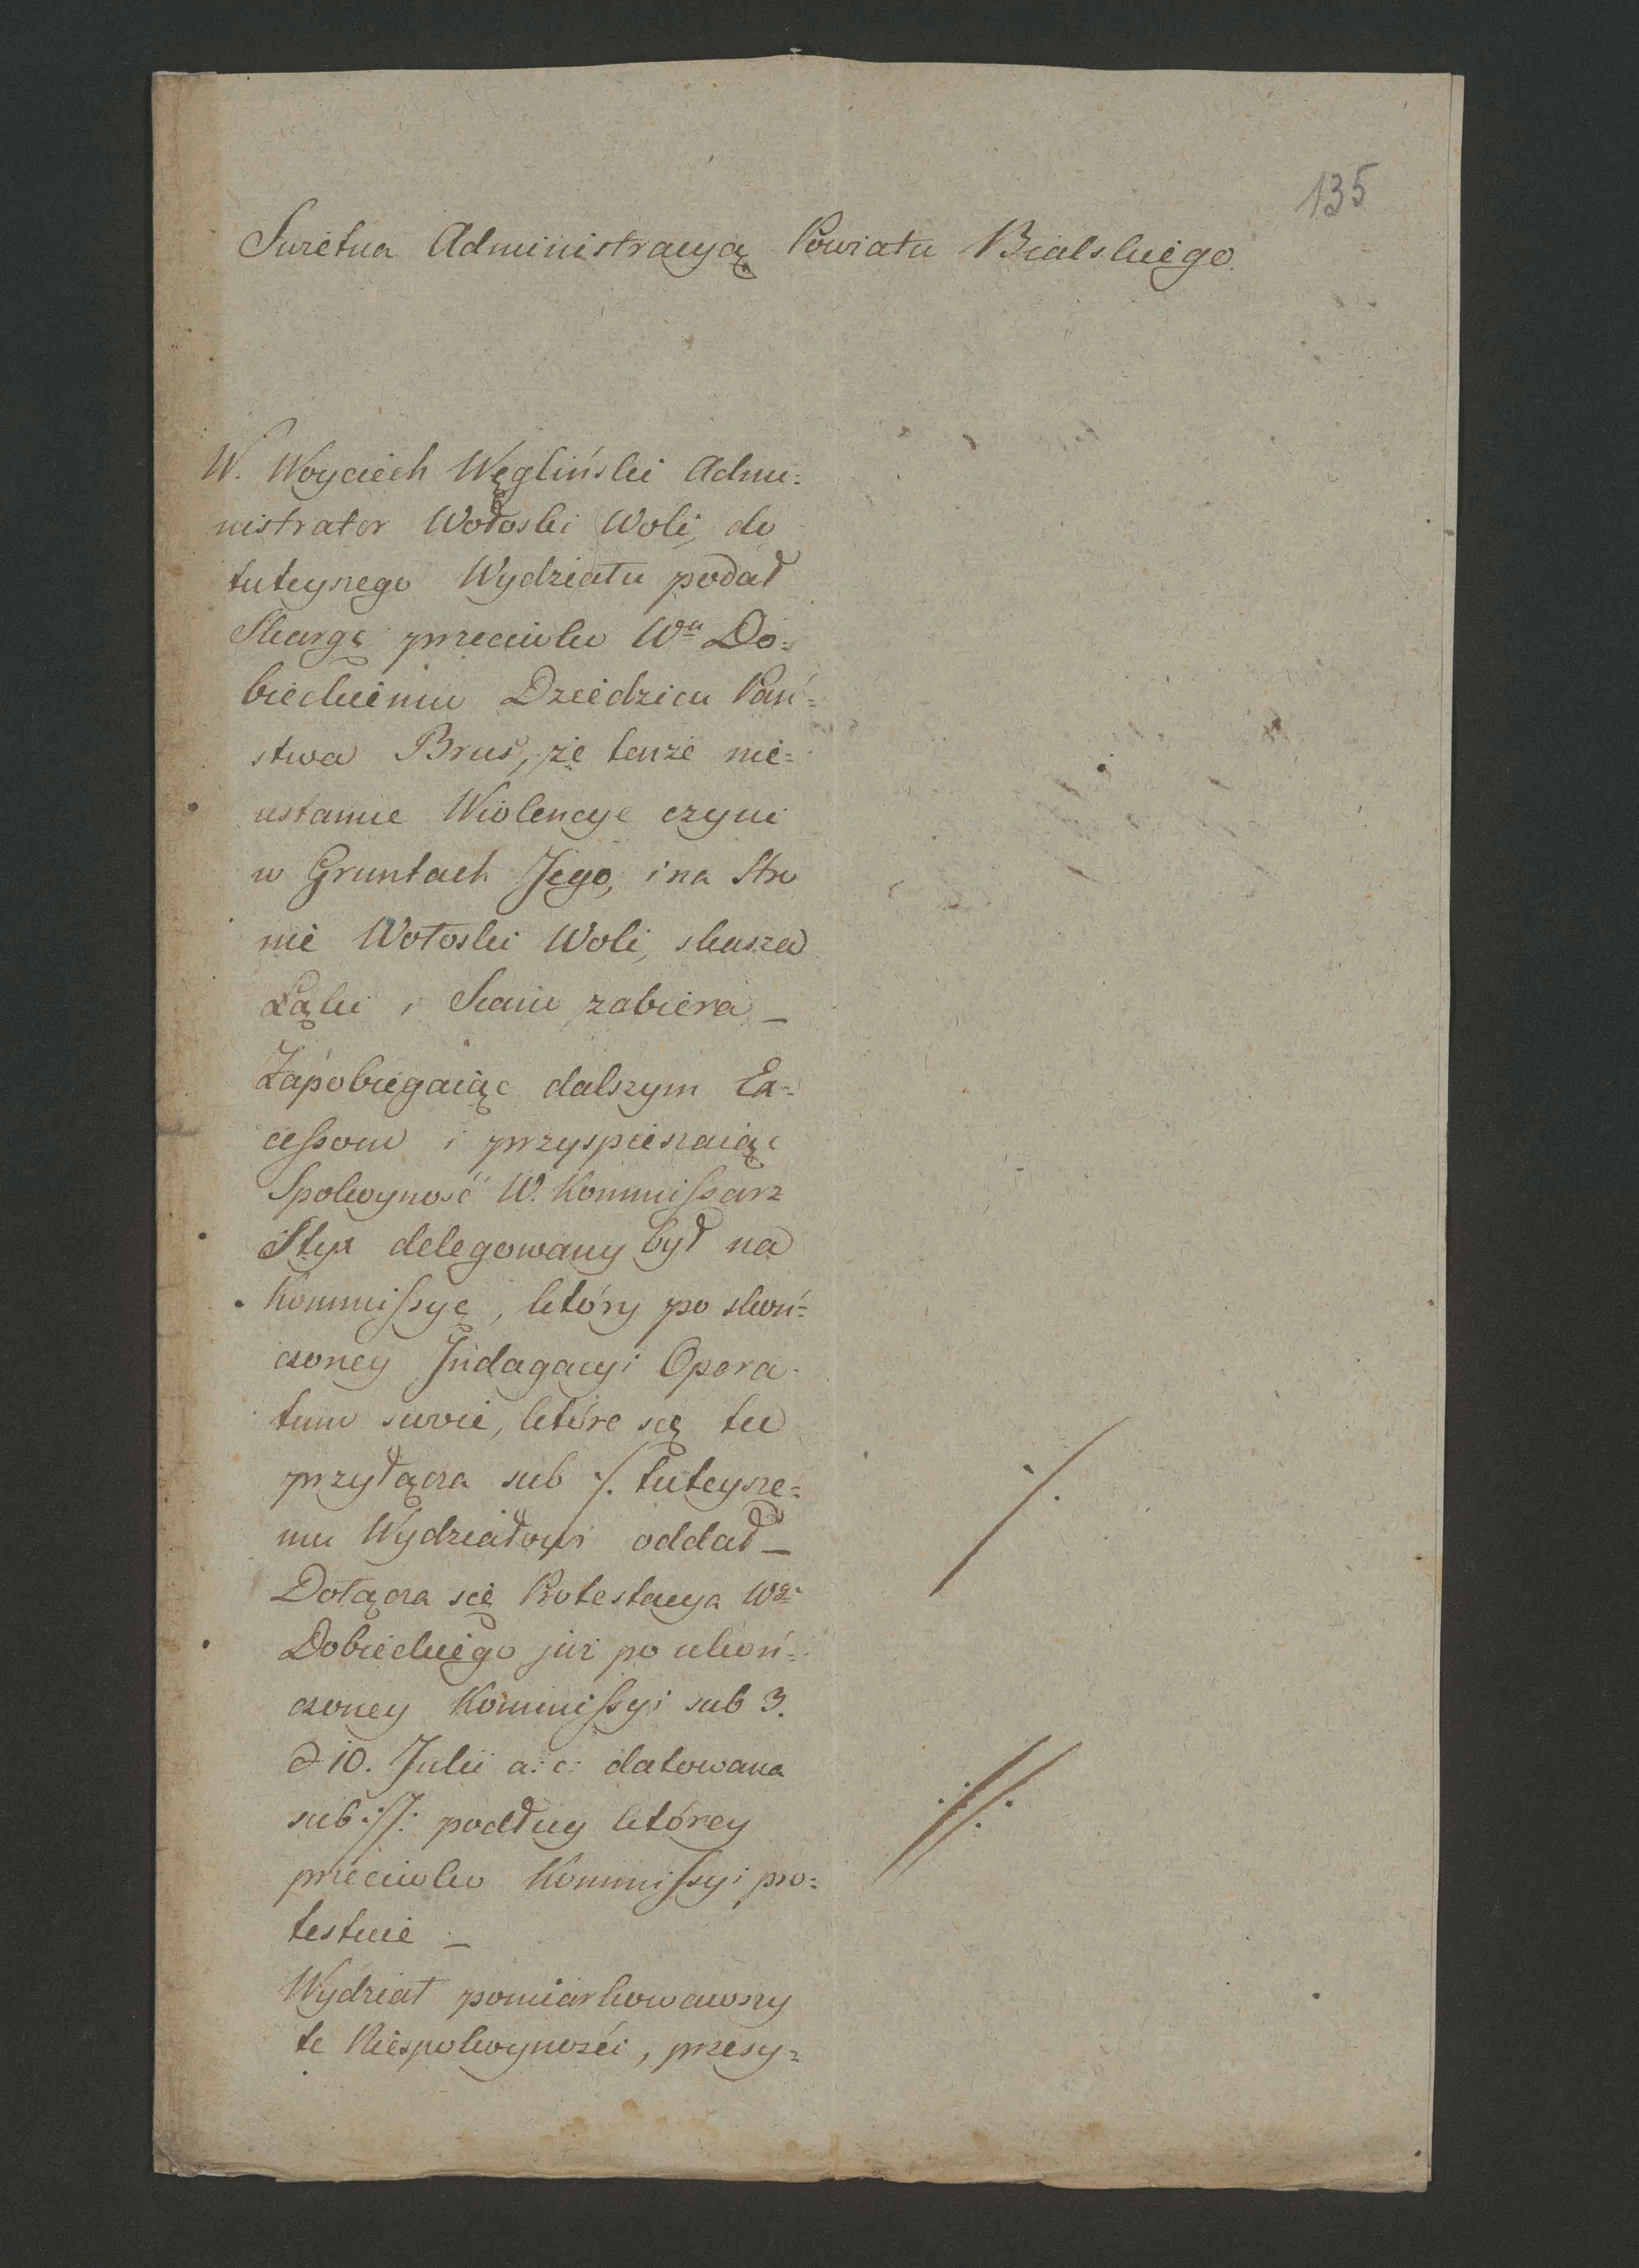 135
Swietna Administracyą Powiatu Bialskiego.
W. Woyciech Węgliński Admi=
nistrator Wołoski Woli, do
tuteyszego Wydziału podał
Skargę przeciwko Wu Do=
bieckiemu Dziedzicu Pań=
stwa Brus, że tenże nie=
ustanne Wiolencye czyni
w Gruntach Jego, i na Stro
nie Wołoski Woli, skasza
Łąki i Siano zabiera _
Zapobiegaiąc dalszym Ex=
cessom i przyspieszaiąc
Spokoyność W. Kommissarz
Styx delegowany był na
Kommissyę, który po skoń=
czoney Indagacyi Opera=
tum swoie, które się tu
przyłącza sub ·/. tuteysze=
mu Wydziałowi oddał _
Dołącza się Protestacya Wgo
Dobieckiego już po ukoń=
czoney Kommissyi sub 3.
d 10. Julii a: c: datowana
sub ://: podług którey
przeciwko Kommissyi pro=
testuie _
Wydział pomiarkowawszy
te Niespokoyności, przesy=
·/.
://: